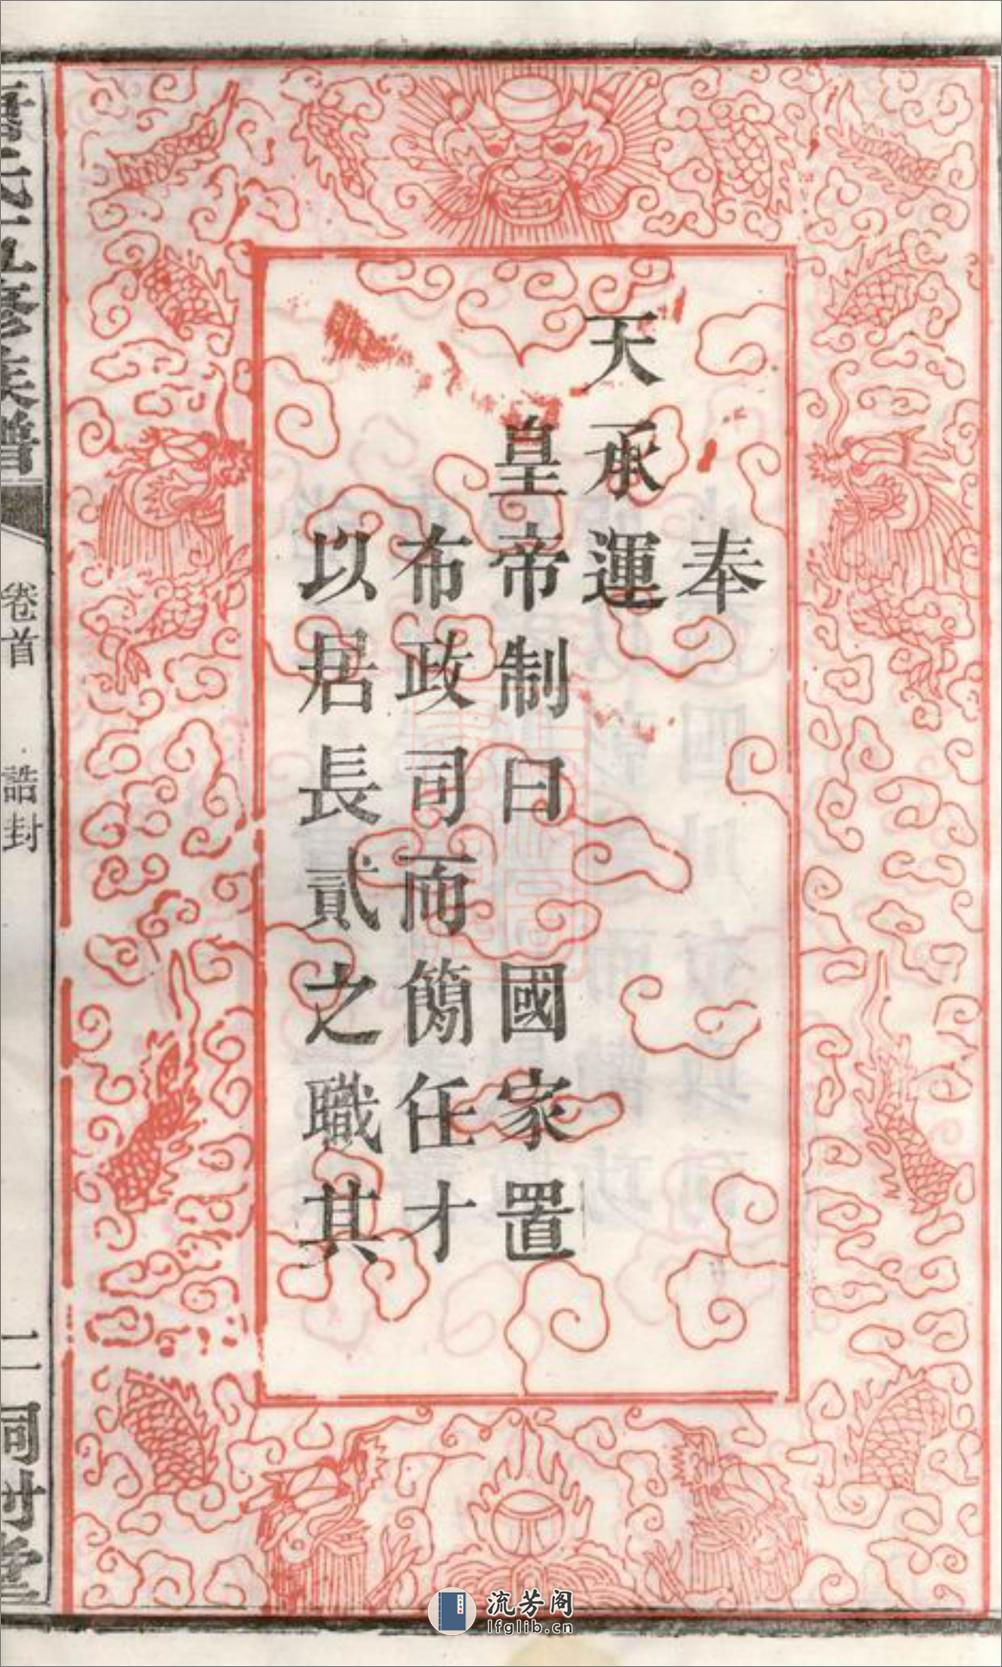 奉
天承運
皇帝制曰國家置
布政司而簡任才
以居長貳之職其
五修族譜
卷首
誥封
二
流芳阁
lfglib.cn